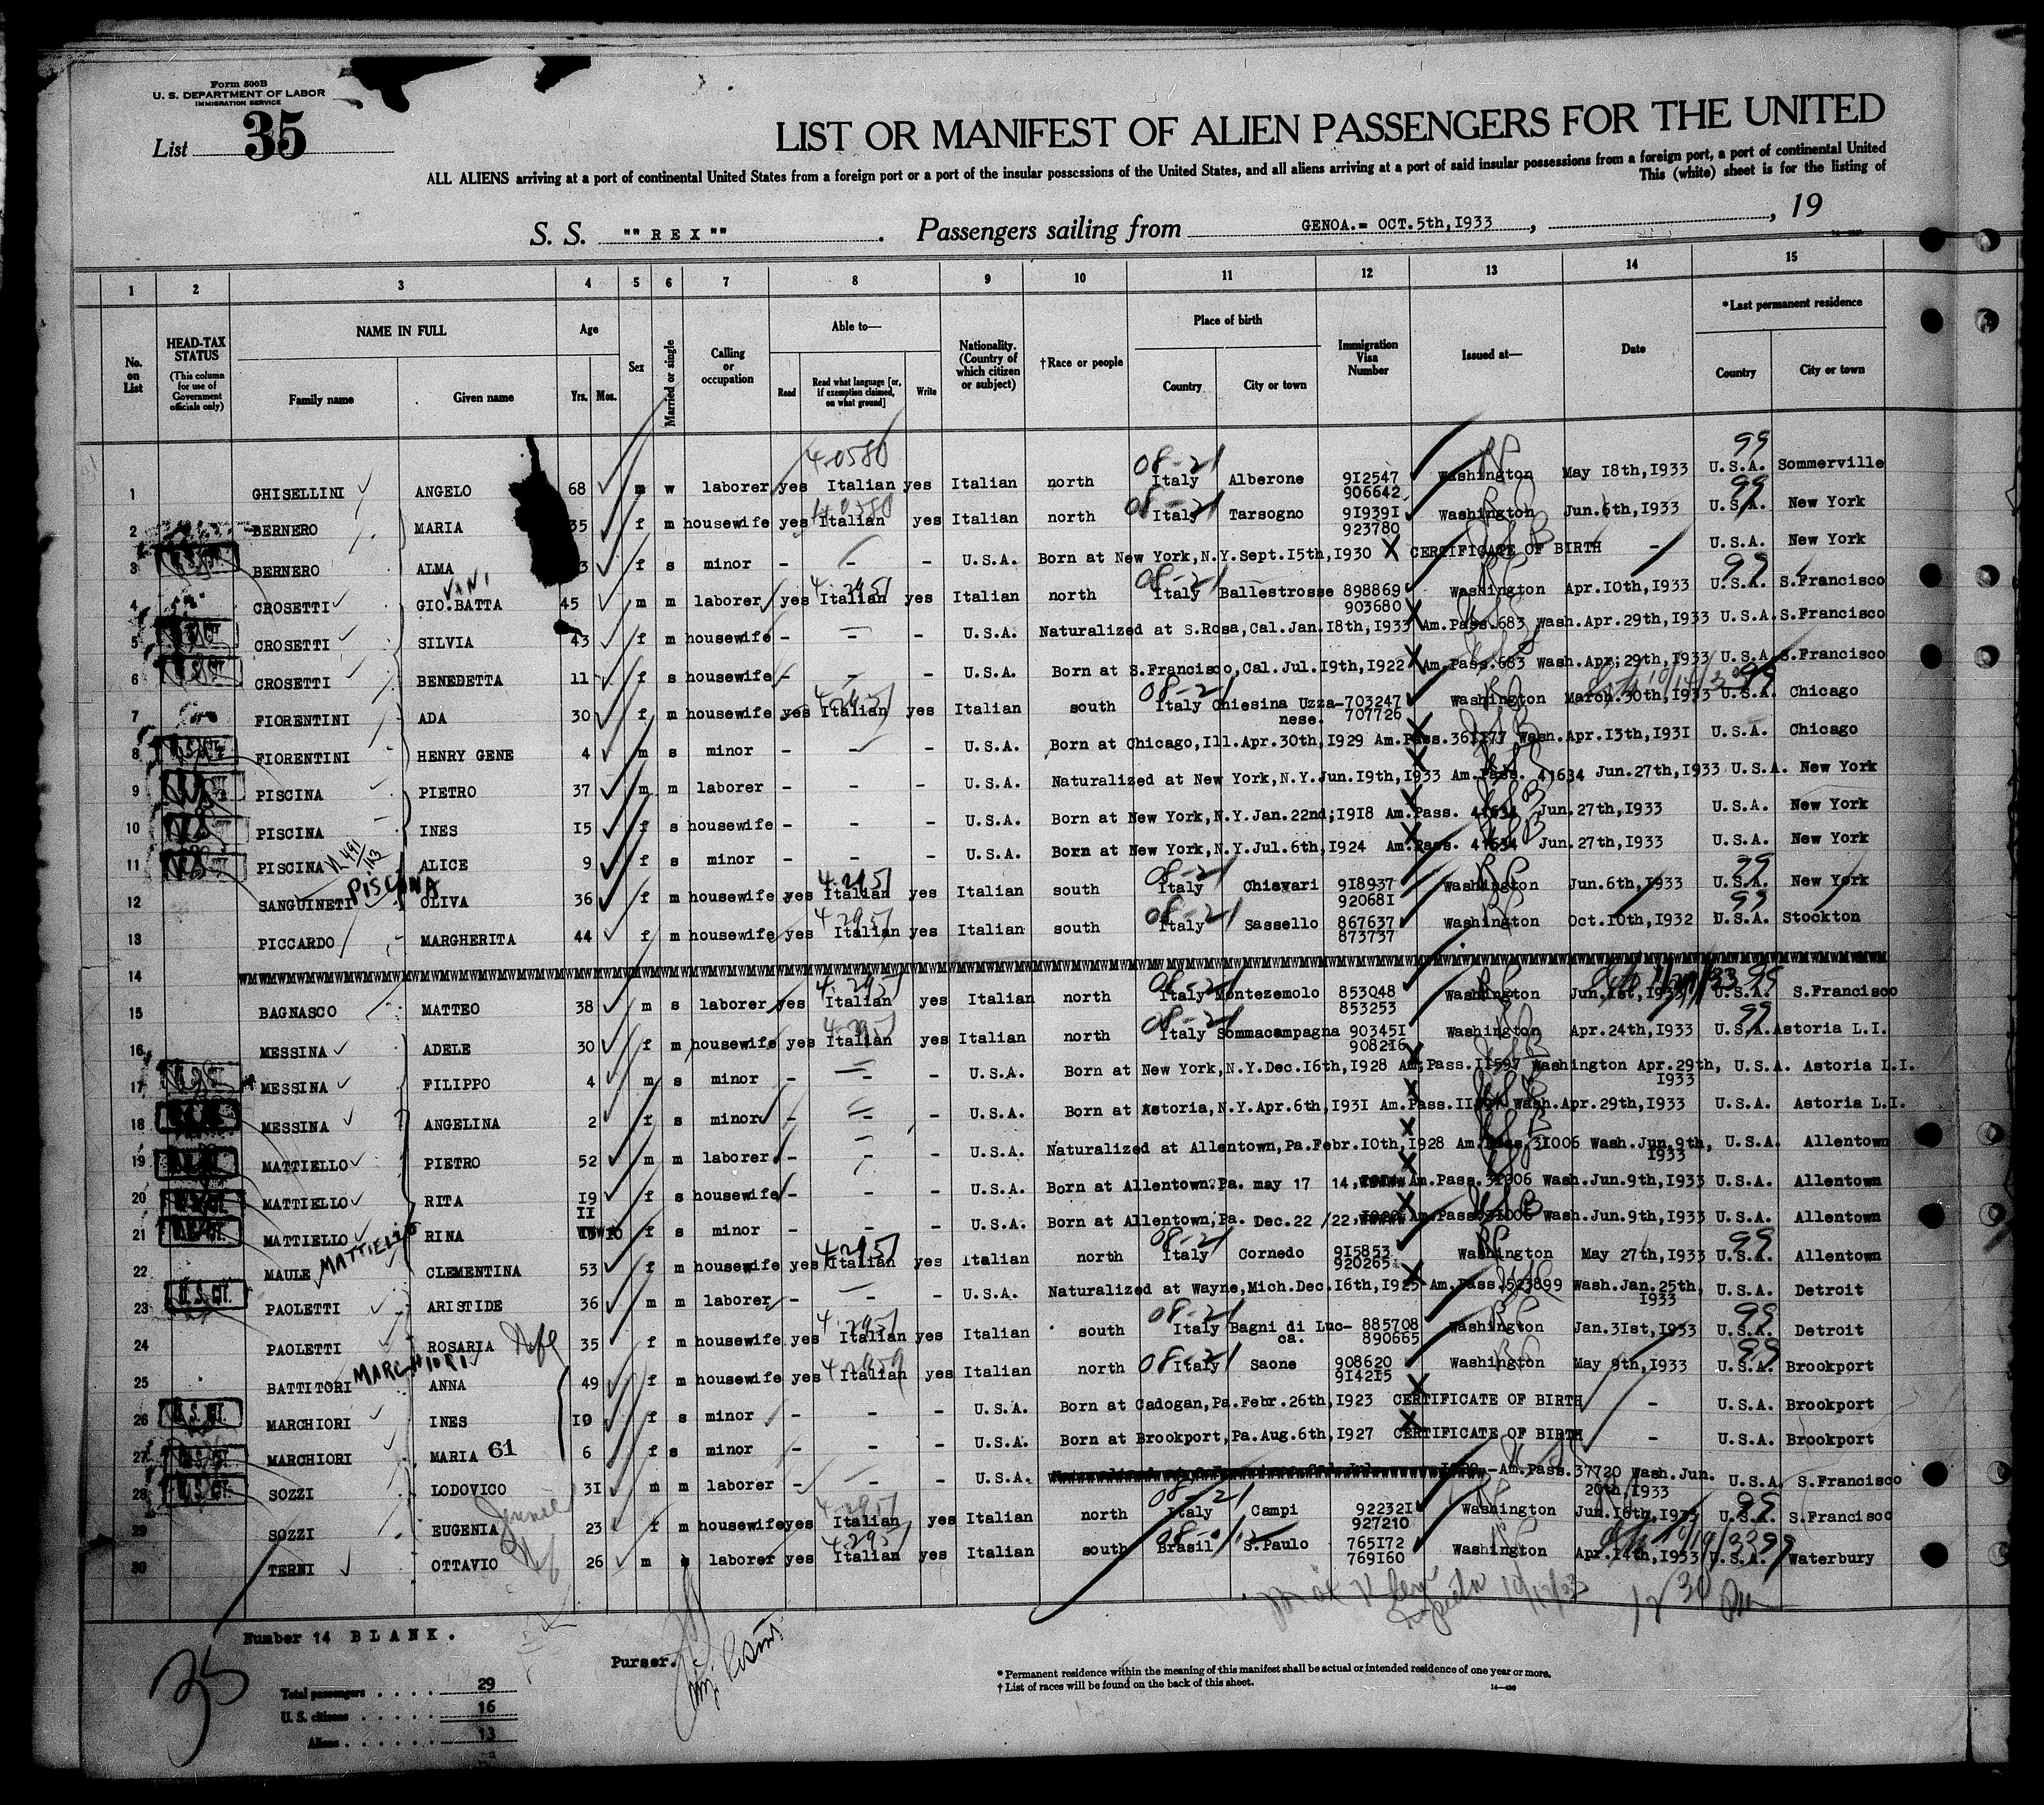 Form 500B
U. S. DEPARTMENT OF LABOR
IMMIGRATION SERVICE
List 35
LIST OR MANIFEST OF ALIEN PASSENGERS FOR THE UNITED
ALL ALIENS arriving at a port of continental United States from a foreign port or a port of the insular possessions of the United States, and all aliens arriving at a port of said insular possessions from a foreign port, a port of continental United
This (white) sheet is for the listing of
S. S. "" R E X "" . Passengers sailing from GENOA.= OCT.5th,I933 , , 19
1 2 3 4 5 6 7 8 9 10 11 12 13 14 15
No. on List HEAD-TAX STATUS (This column for use of Government officials only) NAME IN FULL Family name Given name Age Yrs. Mos. Sex Married or single Calling or occupation Able to— Read Read what language [or, if exemption claimed, on what ground] Write Nationality. (Country of which citizen or subject) †Race or people Place of birth Country City or town Immigration Visa Number Issued at— Date *Last permanent residence Country City or town
1 GHISELLINI ANGELO 68 m w laborer yes Italian yes Italian north Italy Alberone 9I2547 906642 Washington May I8th,I933 U.S.A. Sommerville
2 BERNERO MARIA 35 f m housewife yes Italian yes Italian north Italy Tarsogno 9I939I 923780 Washington Jun.6th,I933 U.S.A. New York
3 BERNERO ALMA 3 f s minor - - - U.S.A. Born at New York,N.Y.Sept.I5th,I930 CERTIFICATE OF BIRTH - U.S.A. New York
4 CROSETTI GIO.BATTA 45 m m laborer yes Italian yes Italian north Italy Ballestrosse 898869 903680 Washington Apr.I0th,I933 U.S.A. S.Francisco
5 CROSETTI SILVIA 43 f m housewife - - - U.S.A. Naturalized at S.Rosa,Cal.Jan.I8th,I933 Am.Pass.683 Wash.Apr.29th,I933 U.S.A. S.Francisco
6 CROSETTI BENEDETTA 11 f s housewife - - - U.S.A. Born at S.Francisco,Cal.Jul.I9th,I922 Am.Pass.683 Wash.Apr;29th,I933 U.S.A. S.Francisco
7 FIORENTINI ADA 30 f m housewife yes Italian yes Italian south Italy Chiesina Uzza-nese. 703247 707726 Washington March.30th,I933 U.S.A. Chicago
8 FIORENTINI HENRY GENE 4 m s minor - - - U.S.A. Born at Chicago,Ill.Apr.30th,I929 Am.Pass.36II77 Wash.Apr.I3th,I93I U.S.A. Chicago
9 PISCINA PIETRO 37 m m laborer - - - U.S.A. Naturalized at New York,N.Y.Jun.I9th,I933 Am.Pass. 41634 Jun.27th,I933 U.S.A. New York
10 PISCINA INES I5 f s housewife - - - U.S.A. Born at New York,N.Y.Jan.22nd;I9I8 Am.Pass. 41634 Jun.27th,I933 U.S.A. New York
11 PISCINA ALICE 9 f s minor - - - U.S.A. Born at New York,N.Y.Jul.6th,I924 Am.Pass. 41634 Jun.27th,I933 U.S.A. New York
12 SANGUINETI PISCINA OLIVA 36 f m housewife yes Italian yes Italian south Italy Chiavari 9I8937 92068I Washington Jun.6th,I933 U.S.A. New York
13 PICCARDO MARGHERITA 44 f m housewife yes Italian yes Italian south Italy Sassello 867637 873737 Washington Oct.I0th,I932 U.S.A. Stockton
14
15 BAGNASCO MATTEO 38 m s laborer yes Italian yes Italian north Italy Montezemolo 853048 853253 Washington Jun.Ist,I933 U.S.A. S.Francisco
16 MESSINA ADELE 30 f m housewife yes Italian yes Italian north Italy Sommacampagna 90345I 9082I6 Washington Apr.24th,I933 U.S.A. Astoria L.I.
17 MESSINA FILIPPO 4 m s minor - - - U.S.A. Born at New York,N.Y.Dec.I6th,I928 Am.Pass.II597 Washington Apr.29th, I933 U.S.A. Astoria L.I.
18 MESSINA ANGELINA 2 f s minor - - - U.S.A. Born at Astoria,N.Y.Apr.6th,I93I Am.Pass. Wash.Apr.29th,I933 U.S.A. Astoria L.I.
19 MATTIELLO PIETRO 52 m m laborer - - - U.S.A. Naturalized at Allentown,Pa.Febr.I0th,I928 Am.Pass.3I006 Wash.Jun.9th, I933 U.S.A. Allentown
20 MATTIELLO RITA I9 f s housewife - - - U.S.A. Born at Allentown.Pa. may 17 14, Am.Pass.3I006 Wash.Jun.9th,I933 U.S.A. Allentown
21 MATTIELLO RINA II 10 f s minor - - - U.S.A. Born at Allentown,Pa. Dec.22 /22, Am.Pass.3I006 Wash.Jun.9th,I933 U.S.A. Allentown
22 MAULE MATTIELLO CLEMENTINA 53 f m housewife yes Italian yes Italian north Italy Cornedo 9I5853 920265 Washington May 27th,I933 U.S.A. Allentown
23 U.S. CIT. PAOLETTI ARISTIDE 36 m m laborer - - - U.S.A. Naturalized at Wayne,Mich.Dec.I6th,I925 Am.Pass.523899 Wash.Jan.25th, I933 U.S.A. Detroit
24 PAOLETTI ROSARIA Wife 35 f m housewife yes Italian yes Italian south Italy Bagni di Luc-ca. 885708 890665 Washington Jan.3Ist,I933 U.S.A. Detroit
25 BATTITORI MARCHIORI ANNA 49 f m housewife yes Italian yes Italian north Italy Saone 908620 9I42I5 Washington May 9th,I933 U.S.A. Brookport
26 U.S. CIT. MARCHIORI INES I0 f s minor - - - U.S.A. Born at Cadogan,Pa.Febr.26th,I923 CERTIFICATE OF BIRTH - U.S.A. Brookport
27 MARCHIORI MARIA 61 6 f s minor - - - U.S.A. Born at Brookport,Pa.Aug.6th,I927 CERTIFICATE OF BIRTH - U.S.A. Brookport
28 SOZZI LODOVICO 3I m m laborer - - - U.S.A. Am.Pass.37720 Wash.Jun. 20th,I933 U.S.A. S.Francisco
29 SOZZI EUGENIA Jennie 23 f m housewife yes Italian yes Italian north Italy Campi 92232I 927210 Washington Jun.I6th,I933 U.S.A. S.Francisco
30 TERNI OTTAVIO 26 m s laborer yes Italian yes Italian south Brasil S.Paulo 765I72 769I60 Washington Apr.I4th,I933 U.S.A. Waterbury
Number 14 B L A N K .
Purser.
35
Total passengers . . . . 29
U. S. citizens . . . . . 16
Aliens . . . . . . 13
* Permanent residence within the meaning of this manifest shall be actual or intended residence of one year or more.
† List of races will be found on the back of this sheet.